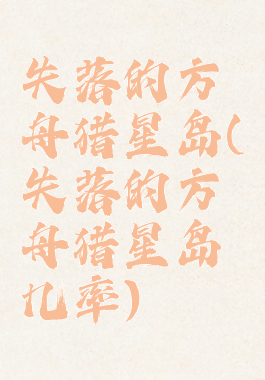 失落的方
舟猎星岛(
失落的方
舟猎星岛
几率)